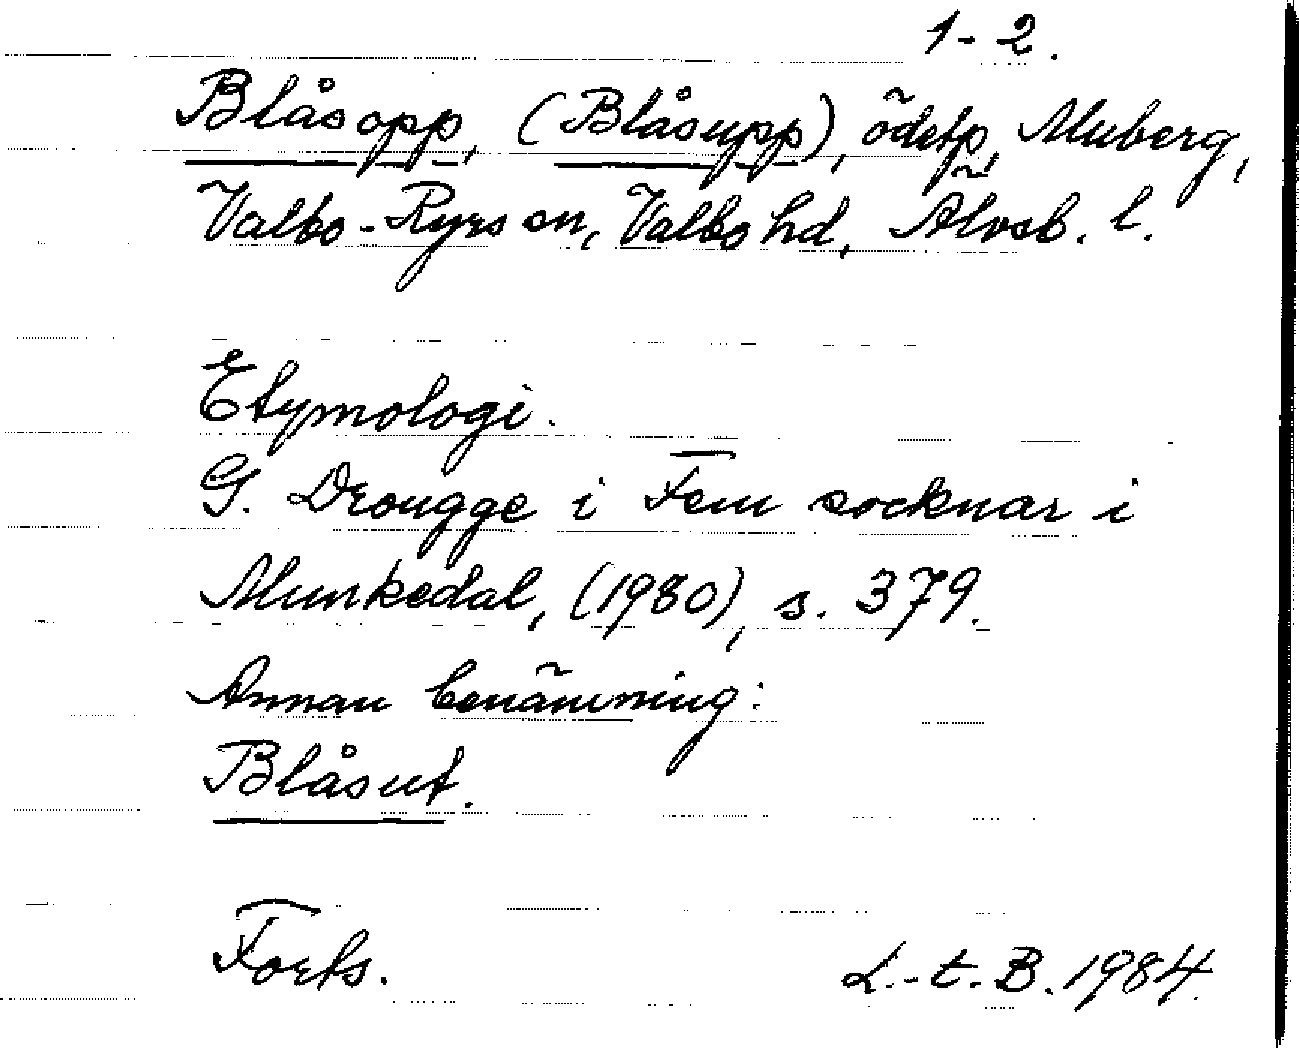 1-2.
Blåsopp, (Blåsupp), ödetp, Muberg,
Valbo-Ryrs sn, Valbo hd, Älvsb. l.
Etymologi.
G. Drougge i Fem socknar i
Munkedal, (1980), s. 379.
Annan benämning:
Blåsut.
Forts. L.-t. B. 1984.